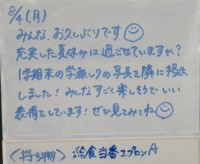 8/4(月)
みんな、お久しぶりです
充実した夏休みに過ごせていますか?
1学期末の学級レクの写真を隣に掲示
しました!みんなすごく楽しそうでいい
表情をしています!ぜひ見てみてね
〈持ち物〉 給食当番エプロンA